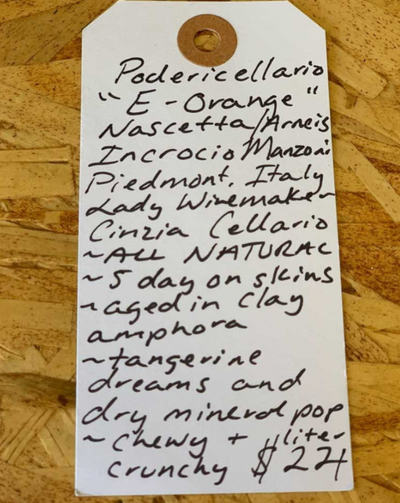 Podericellario
"E-Orange"
Nascetta/Arneis
Incrocio Manzoni
Piedmont, Italy
Lady Winemaker
Cinzia Cellario
~ALL NATURAL
~5 day on skins
~aged in clay
amphora
~tangerine
dreams and
dry mineral pop
~chewy + liter-
crunchy $24